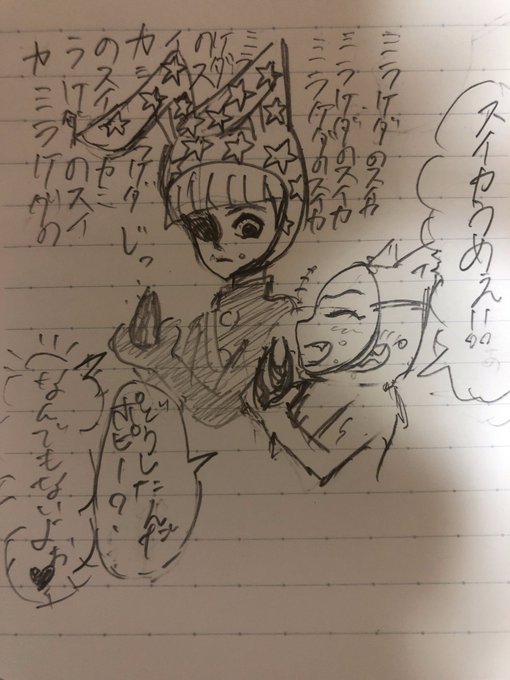 スイカうめえ!!
ミラケダのスイカ
ミラケダのスイカ
ミラケダのスイカ
ミラケダ
のス
イ
カミ ケダ
のスイカミ
ラケダのスイ
カミラケダの
じっ…
どうしたんだ
ポピー?
なんでもないよぉ♥